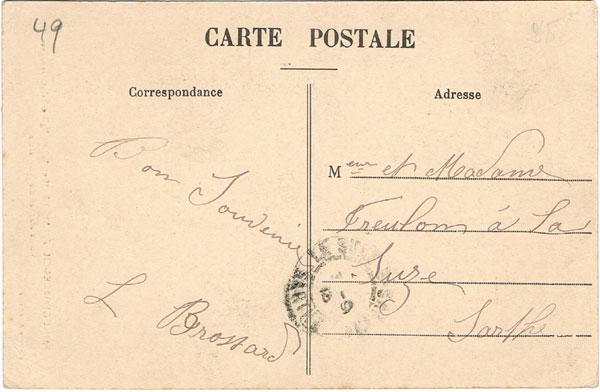 49
25
CARTE POSTALE
Correspondance
Adresse
Bon Souvenir
L Brossard
Meur et Madame
Freulon à La
Suze
Sarthe
LA SUZE